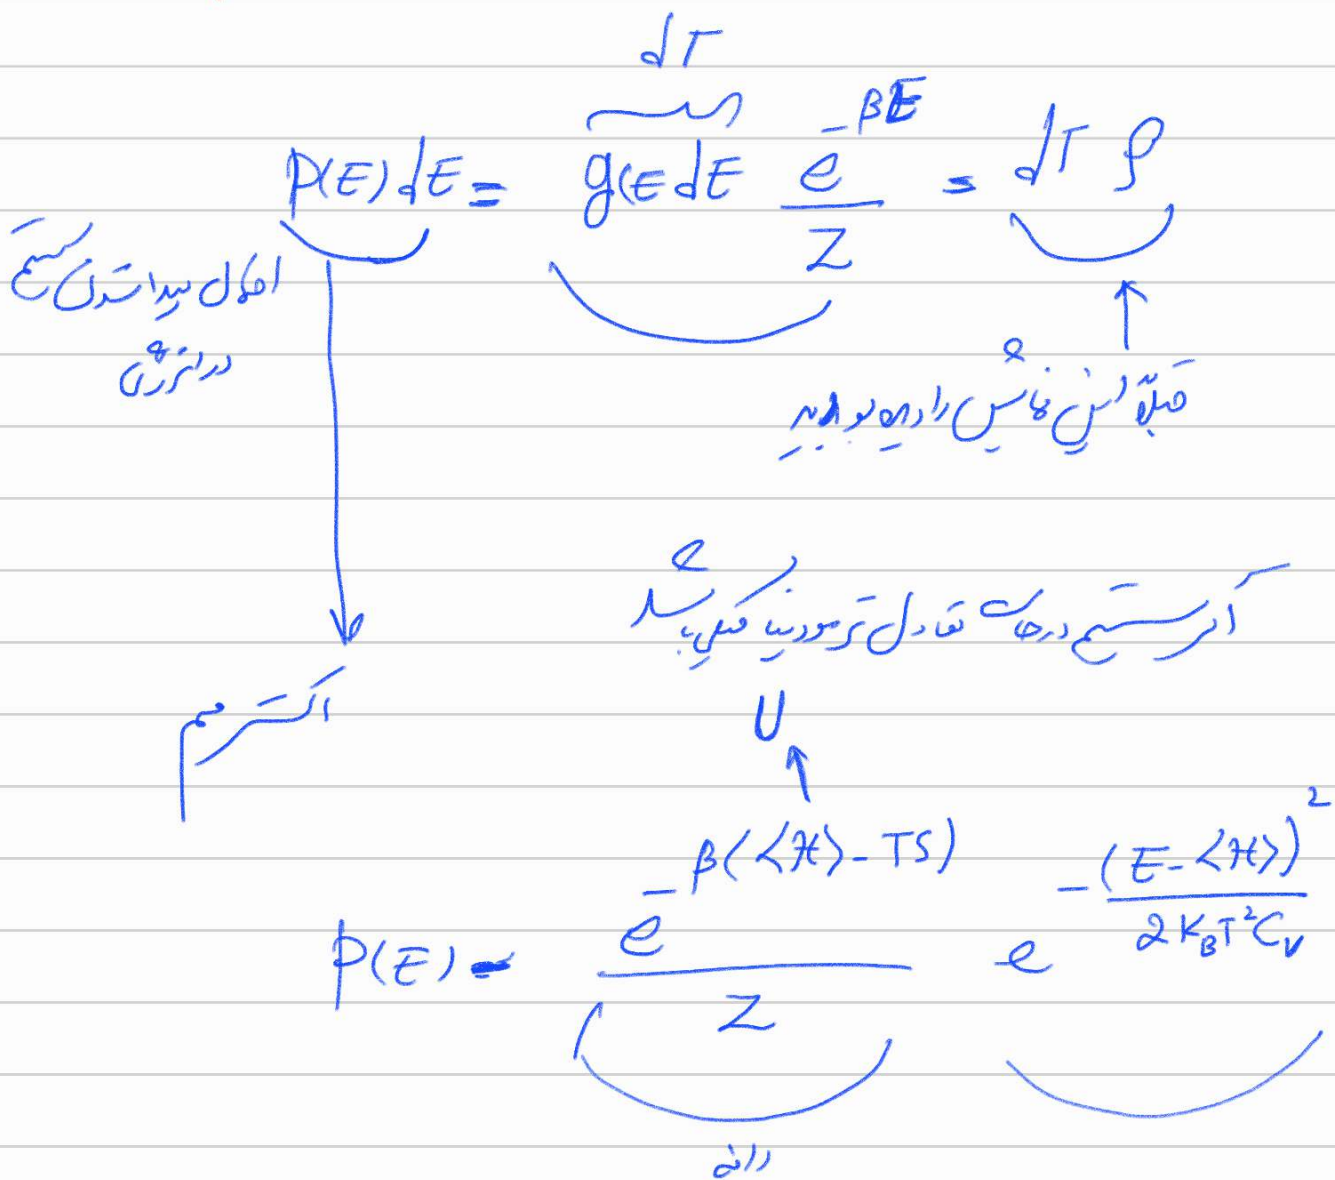 dΓ
P(E)dE = g(E dE e^{-βE} / Z = dΓ ρ
احتمال پیدا شدن سیستم
در انرژی
قبلاً این نمایش را دیده بودید
اگر سیستم در حالت تعادل ترمودینامیکی باشد
اکسترمم
U
P(E) = e^{-β(⟨H⟩ - TS)} / Z e^{-(E-⟨H⟩)^2 / 2K_BT^2C_V}